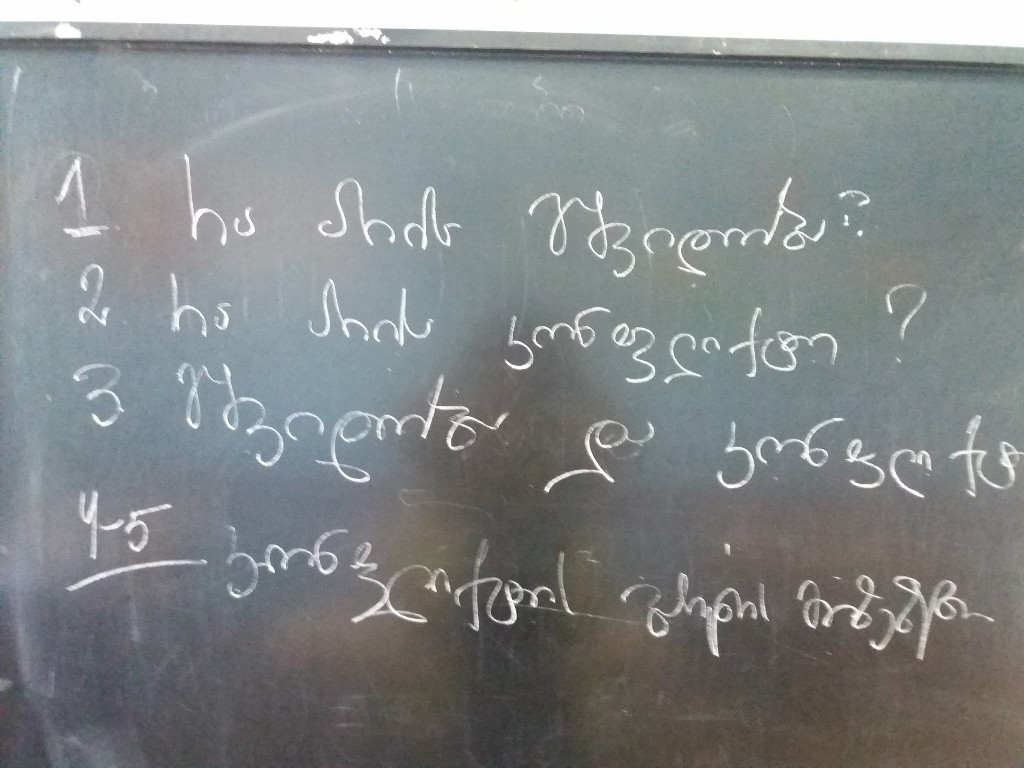 1 რა არის მშვიდობა?
2 რა არის კონფლიქტი?
3 მშვიდობა და კონფლიქტ
4-5 კონფლიქტის